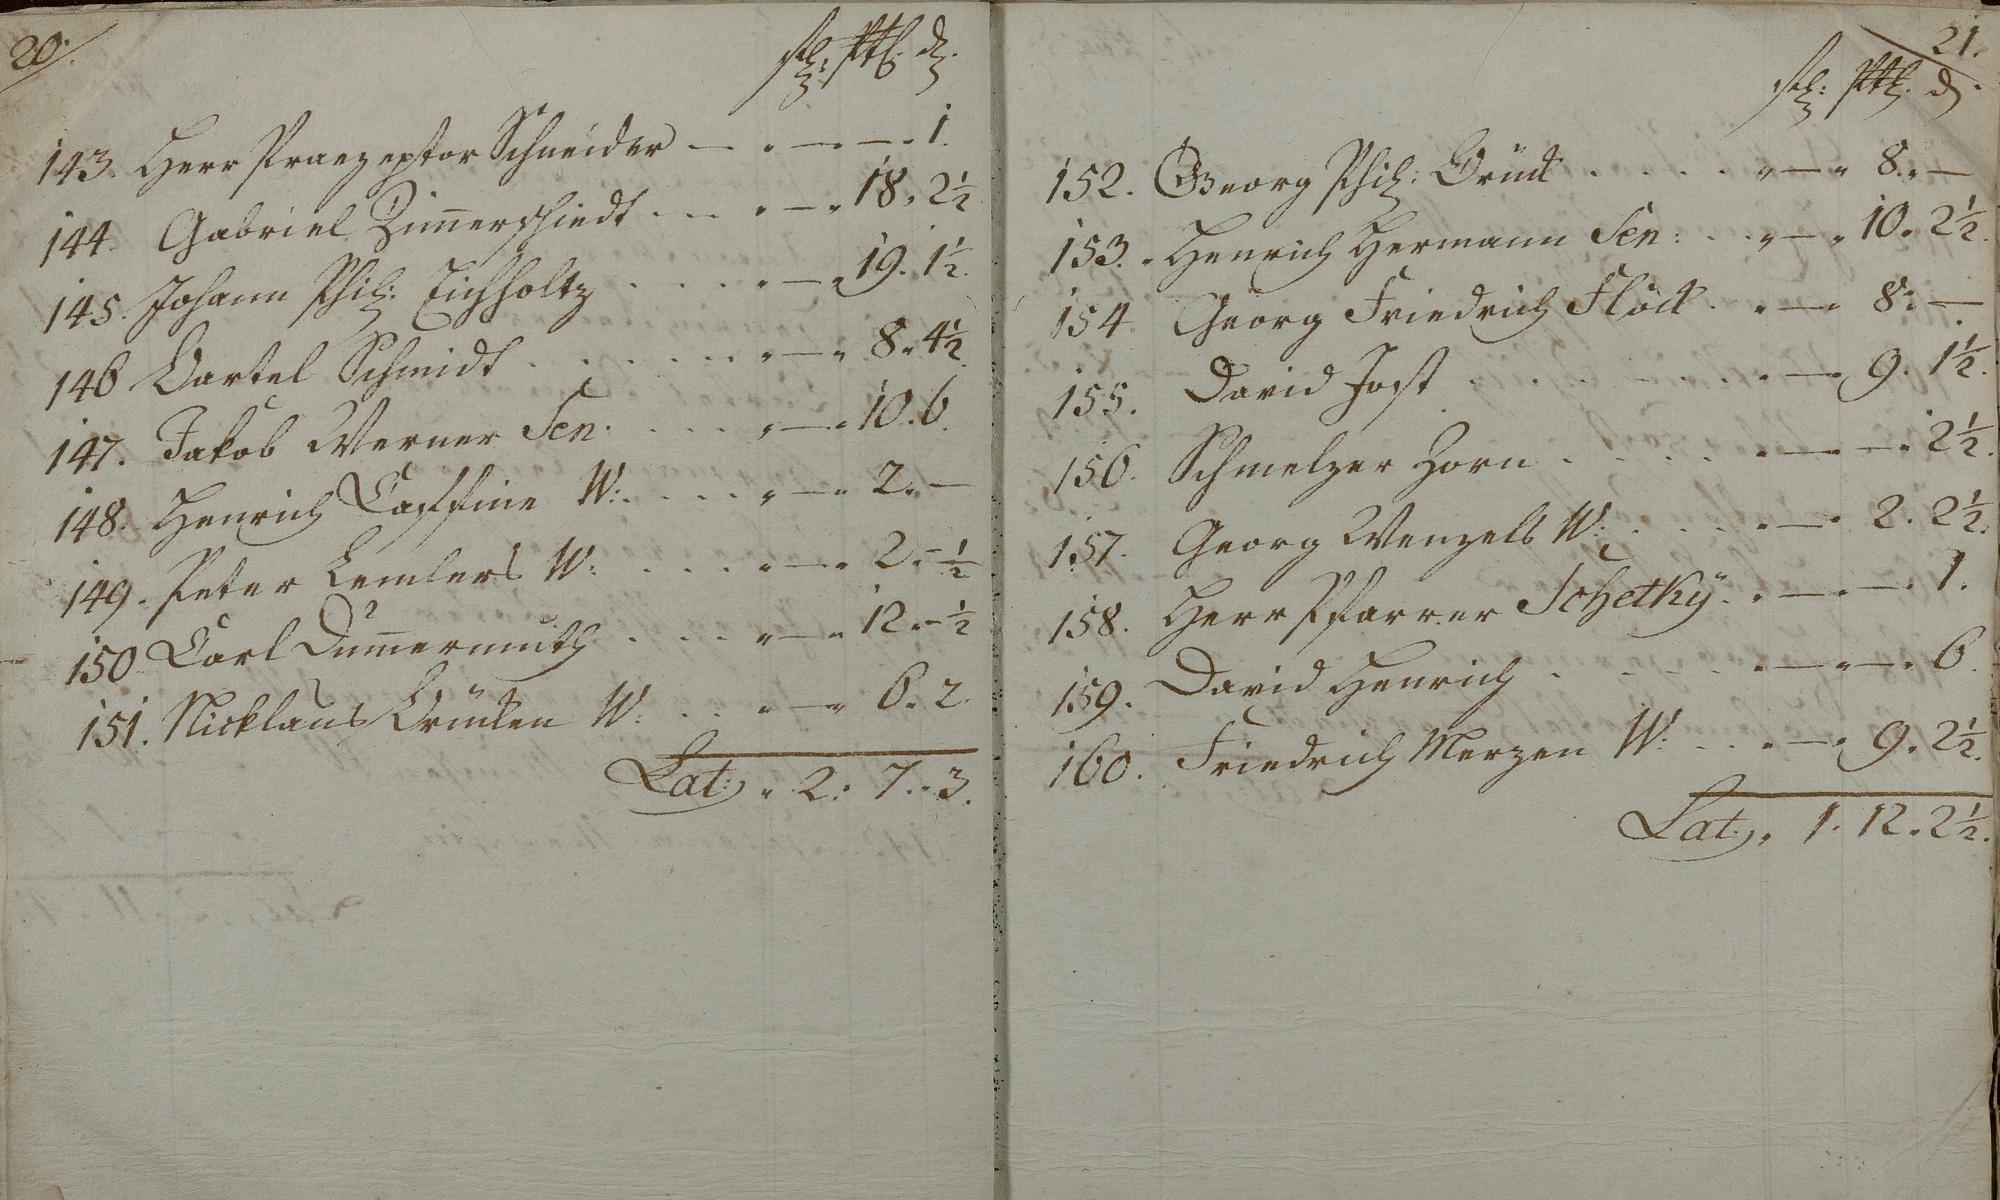 20.
fl: Rtl. d.
143. Herr Praezeptor Schneider — . — . — . 1.
144. Gabriel Zim̄erschiedt . . . . — . 18. 2½
145. Johann Phil: Eichholtz . . . . — . 19. 1½.
146 Bartel Schmidt . . . . . . . — . 8. 4½
147. Jakob Werner Sen. . . . . — . 10. 6.
148. Henrich W: . . . . — . 2. —
149. Peter Lemlers W: . . . . — . 2. — ½
150 Carl Dum̄ermuth . . . . — . 12. — ½
151. Nicklaus Brücken W: . . . — . 6. 2.
Lat: . 2. 7. 3.
21.
fl: d.
152. Georg Phil: Brück . . . . . . — . 8. —
153. Henrich Hermann Sen: . . . — . 10. 2½.
154. Georg Friedrich Flöck . . — . 8. —
155. David Jost . . . . . . . . — . 9. 1½.
156. Schmelzer Horn . . . . . . — . — . 2½.
157. Georg Wenzels W: . . . . . — . 2. 2½.
158. Herr Pfarrer Schetky . . — . — . 1.
159. David Henrich . . . . . — . — . 6.
160. Friedrich Merzen W: . . . — . 9. 2½.
Lat: . 1. 12. 2½.